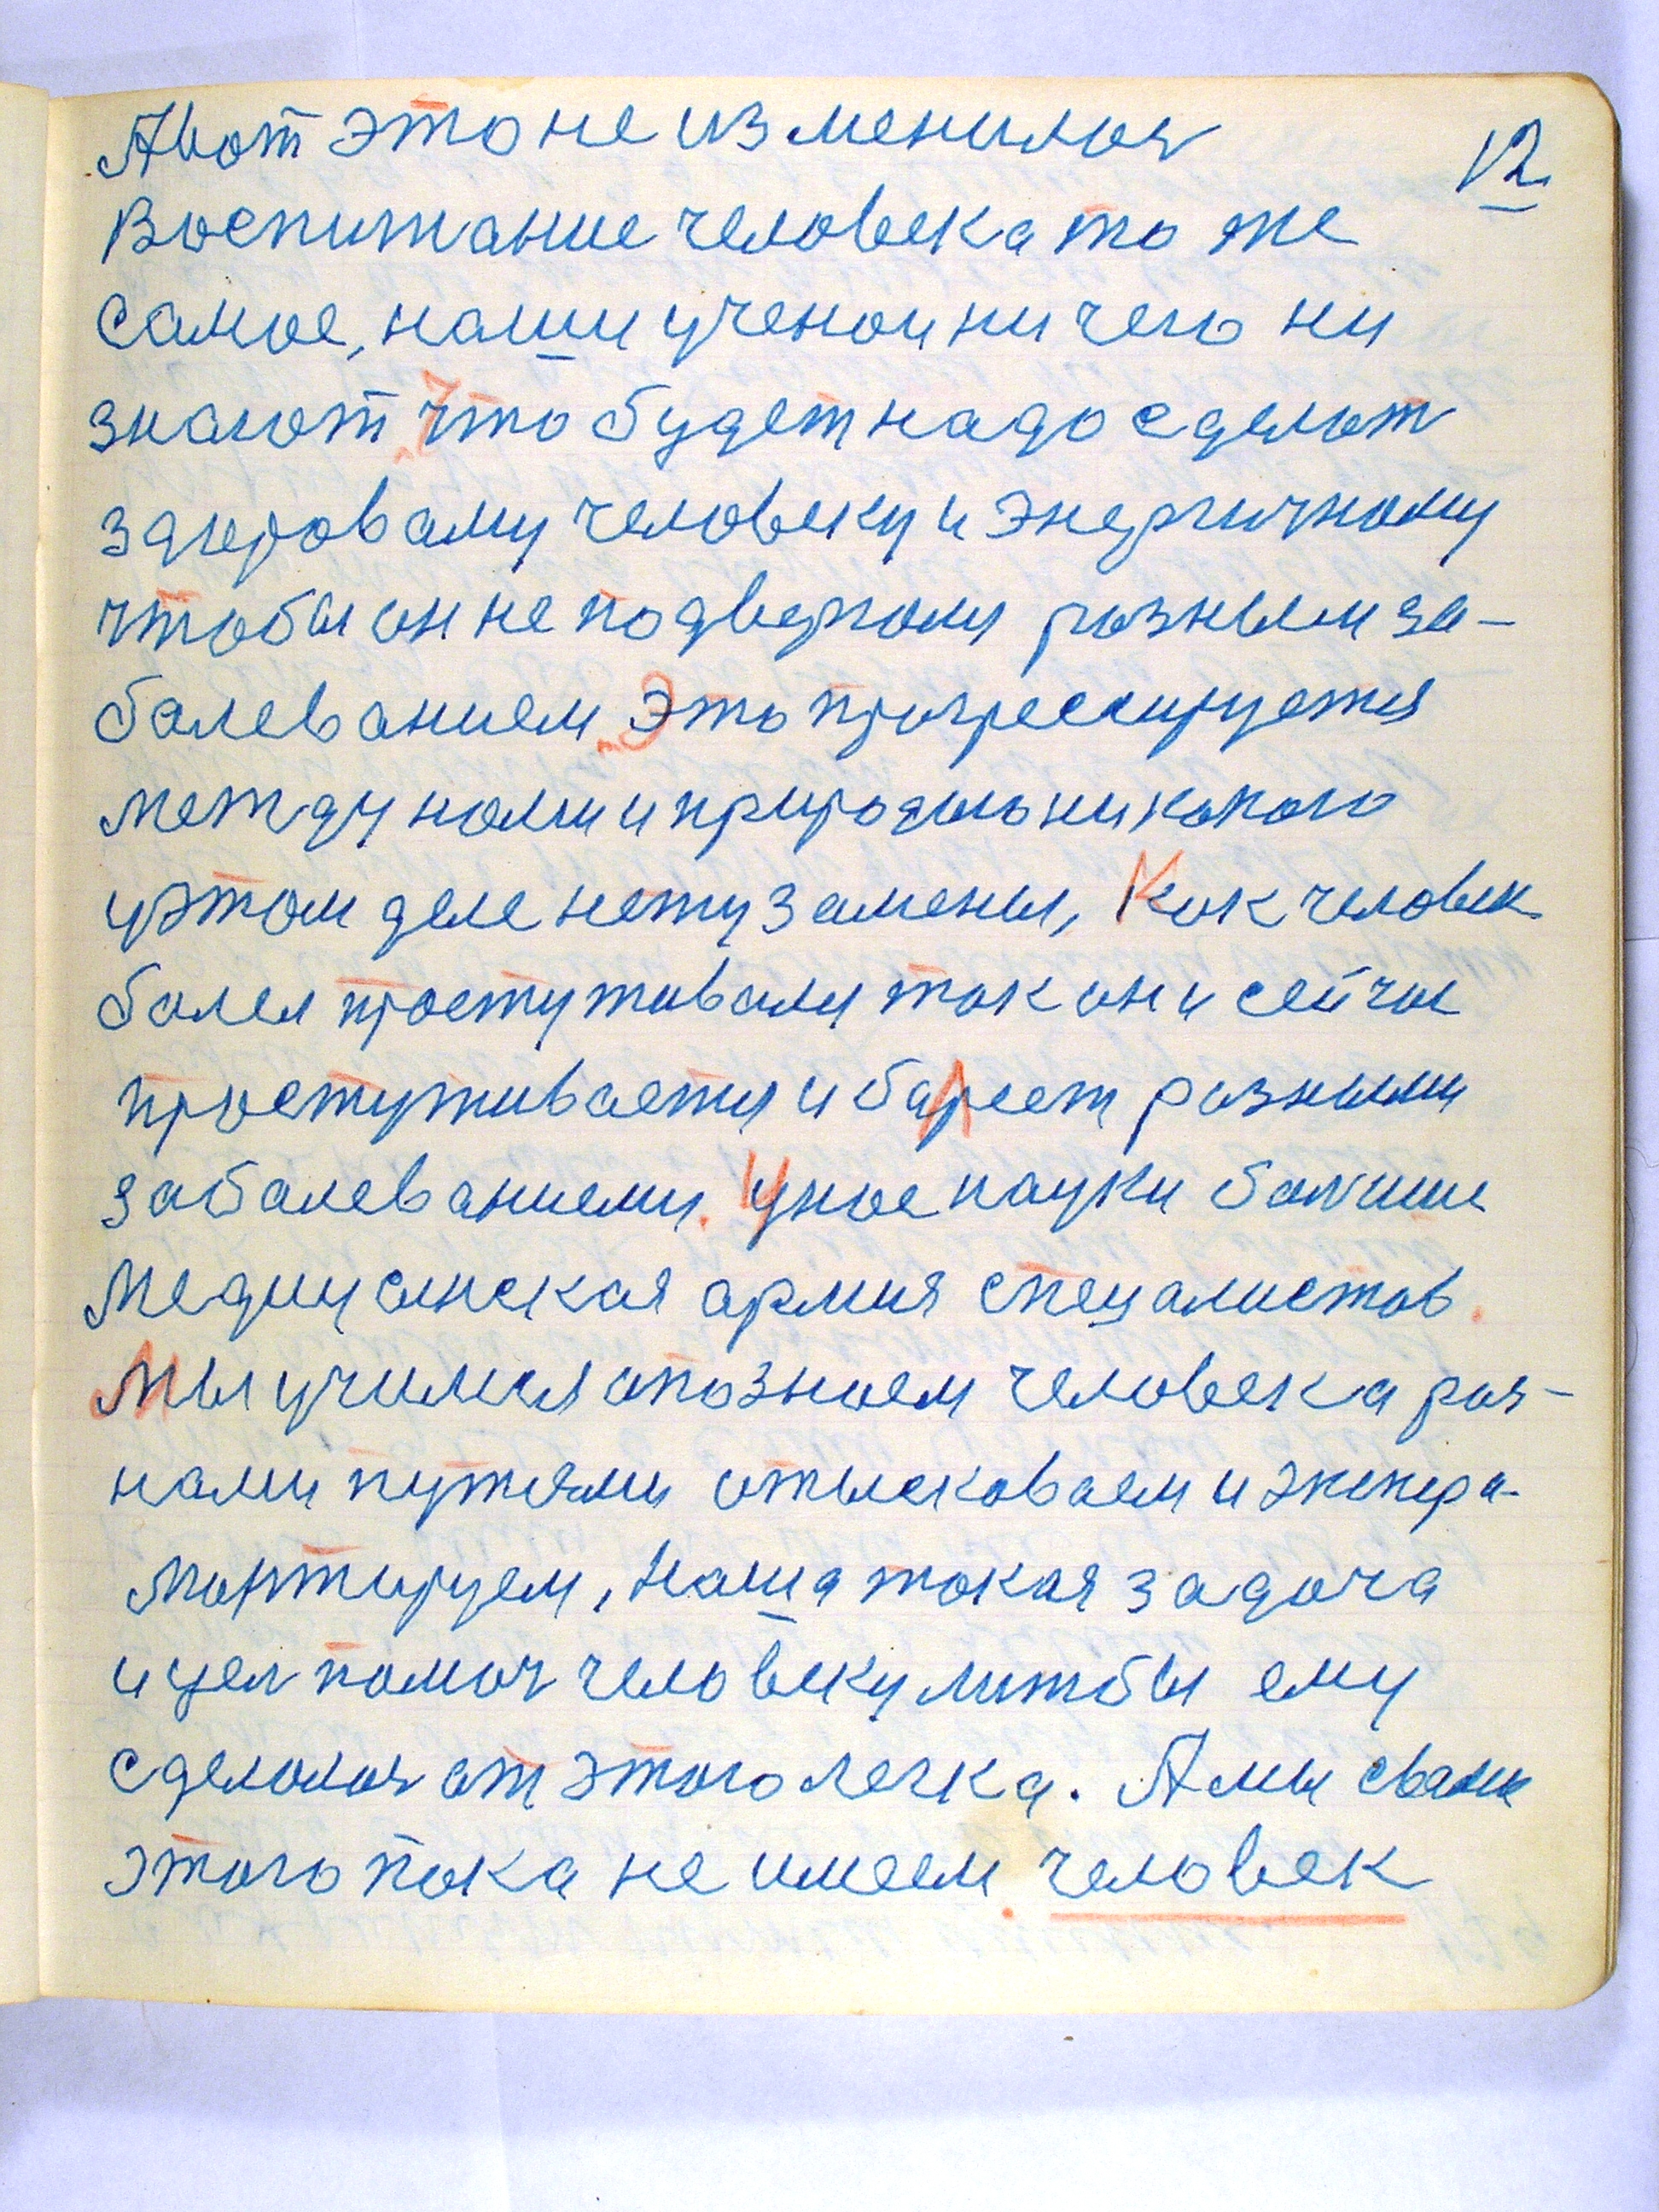 А вот это не изменилоя
12
Воспитание человека то же
самое, наши ученои ни чего ни
знают. Что будет надо сделат
здороваму человеку и энергичному
чтобы он не подвергаля разным за-
балеванием. Это прогрессируетя
между нами и природаю никокого
у этом деле нету замены, Как человек
балел простуживаля так он и сейчас
простуживаетя и балеет разными
забалеваниеми. У нас науки болше
медицинская армия спецалистов.
Мы учимся опознаем человека раз-
нами путями отыскаваем и экспера-
ментируем, Наша такая задача
и цел помоч человеку литбы ему
сделалоя от этого легка. А мы сваих
этого пока не имеем. человек